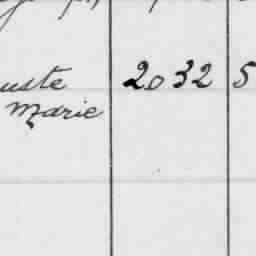 uste 2032 5
Marie